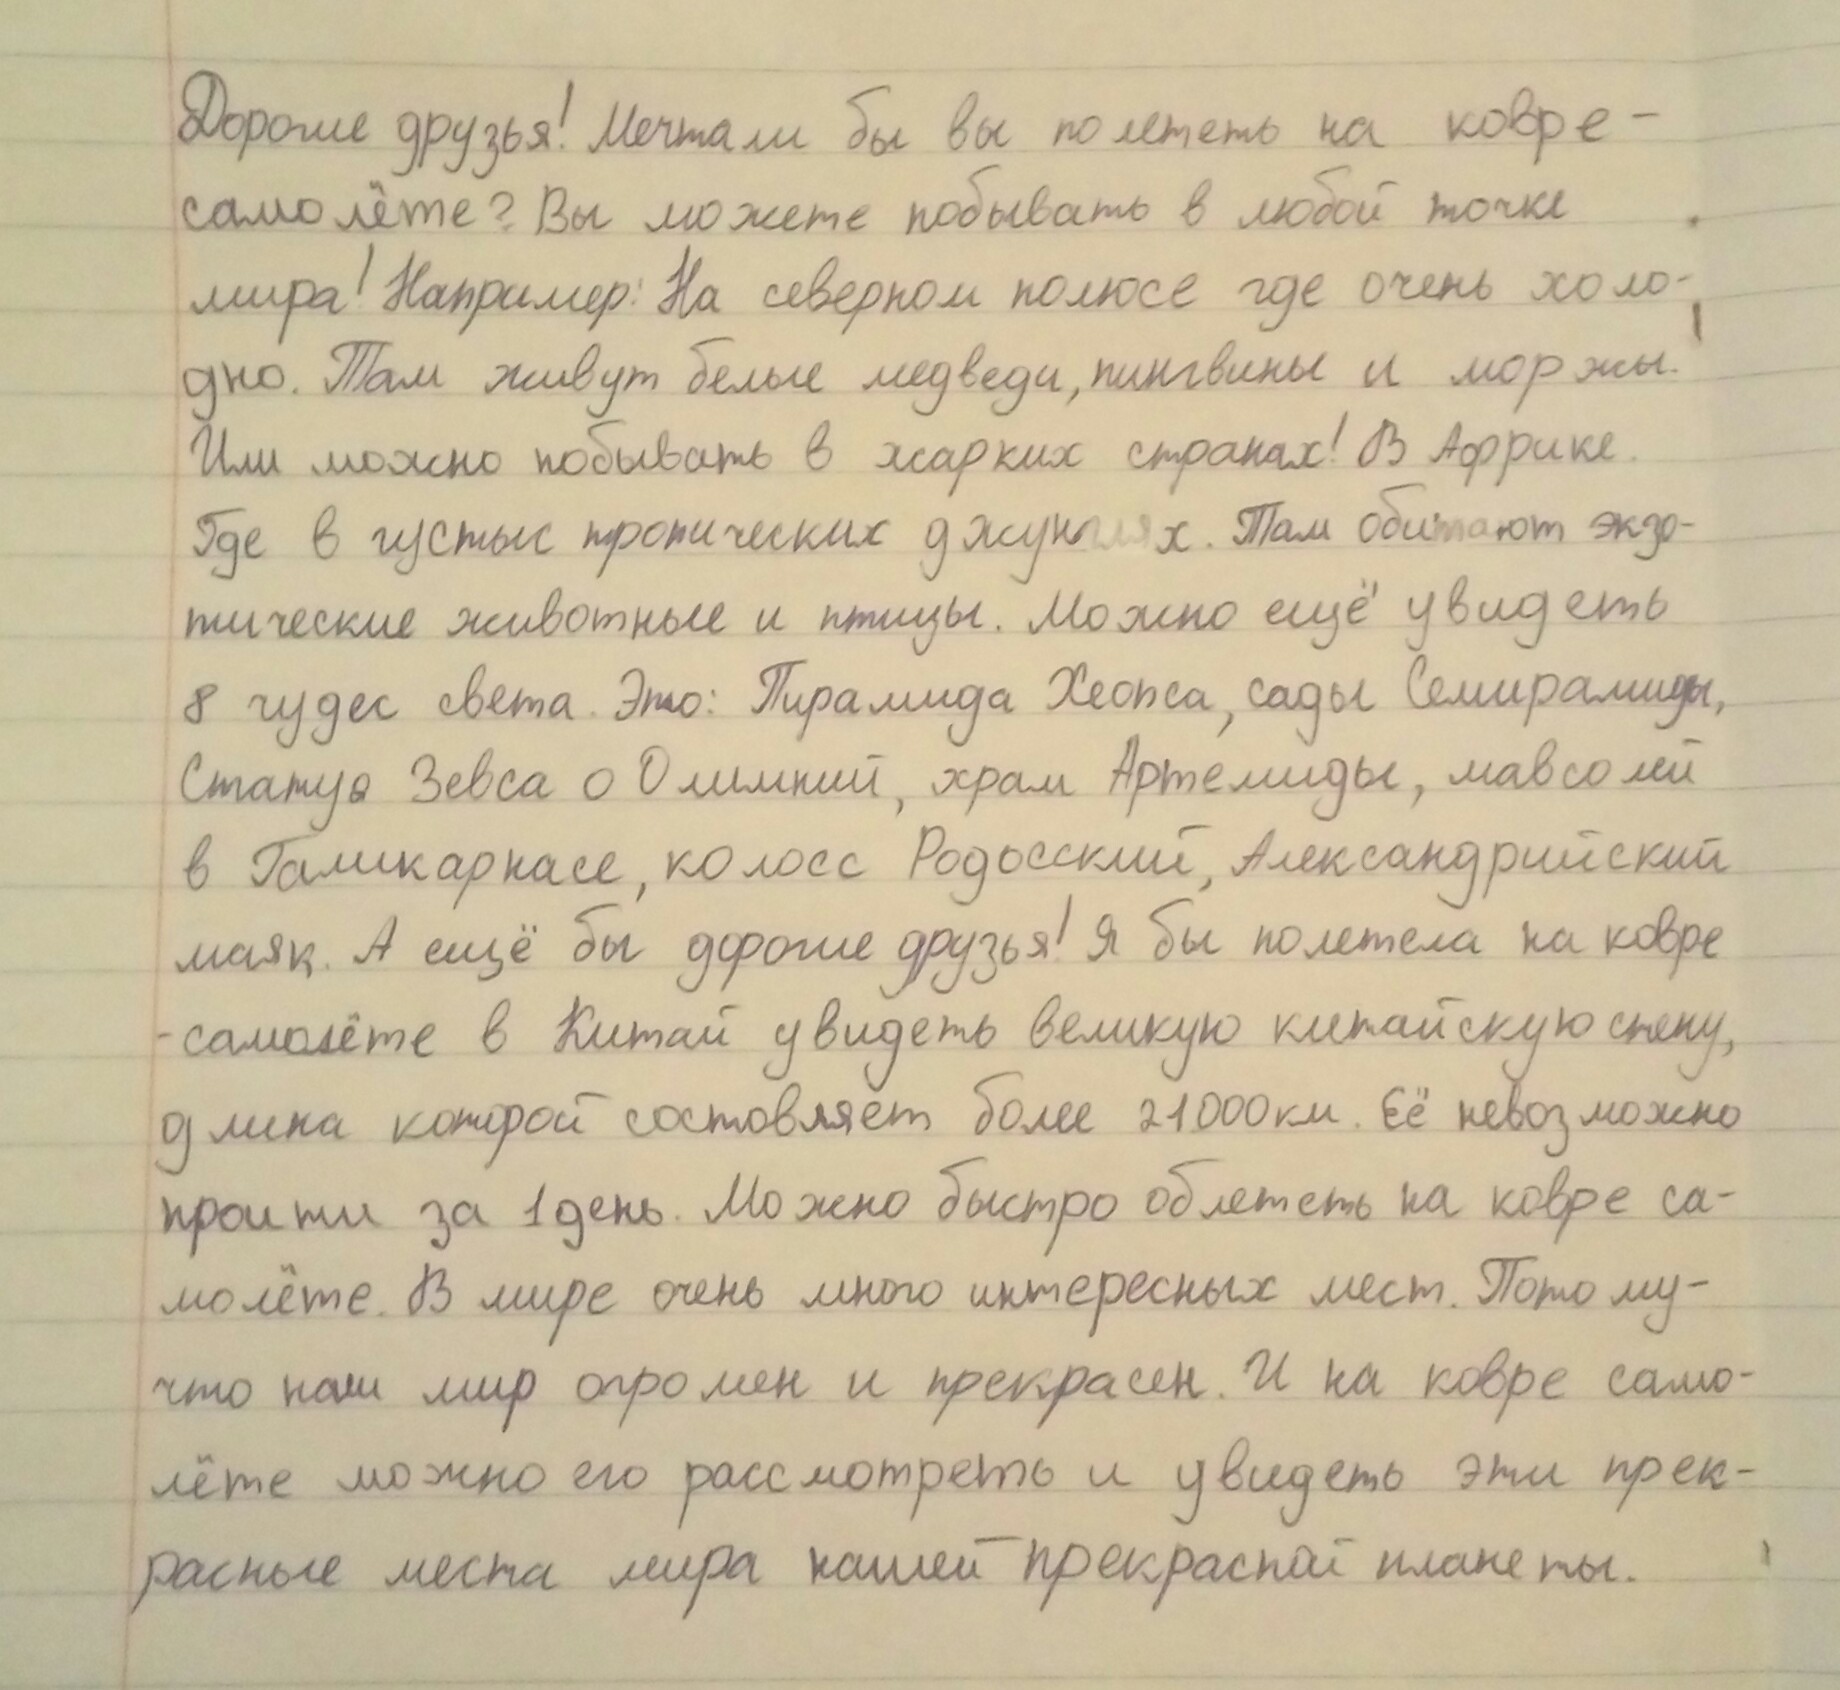 Дорогие друзья! Мечтали бы вы полететь на ковре-
самолёте? Вы можете побывать в любой точке
мира! Например: На северном полюсе где очень холо-
дно. Там живут белые медведи, пингвины и моржы.
Или можно побывать в жарких странах! В Африке.
Где в густых тропических джунглях. Там обитают экзо-
тические животные и птицы. Можно ещё увидеть
8 чудес света. Это: Пирамида Хеопса, сады Семирамиды,
Статуя Зевса о Олимпий, храм Артемиды, мавсолей
в Галикарнасе, колосс Родосский, Александрийский
маяк. А ещё бы дорогие друзья! Я бы полетела на ковре
-самолёте в Китай увидеть великую китайскую стену,
длина которой состовляет более 21000км. Её невозможно
проити за 1 день. Можно быстро облететь на ковре са-
молёте. В мире очень много интересных мест. Потому-
что наш мир огромен и прекрасен. И на ковре само-
лёте можно его рассмотреть и увидеть эти прек-
расные места мира нашей прекрасной планеты.